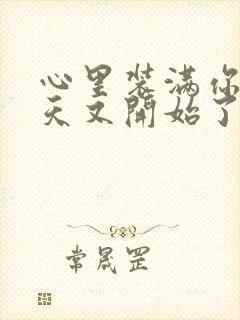 心里装满你
天又開始了
常晟罡